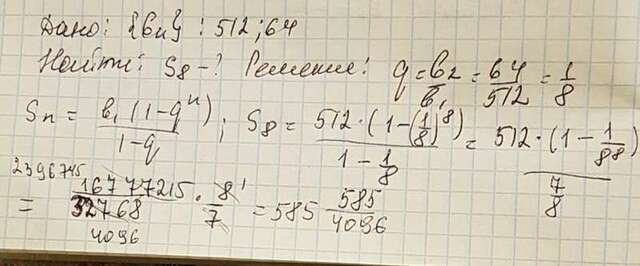 Дано: {bn} : 512; 64
Найти: S8-? Решение: q = b2/b1 = 64/512 = 1/8
Sn = b1(1-q^n)/(1-q); S8 = 512·(1-(1/8)^8)/(1-1/8) = 512·(1-1/8^8)/(7/8)
2396745
= 16777215/32768 · 8/7 = 585 585/4096
4096